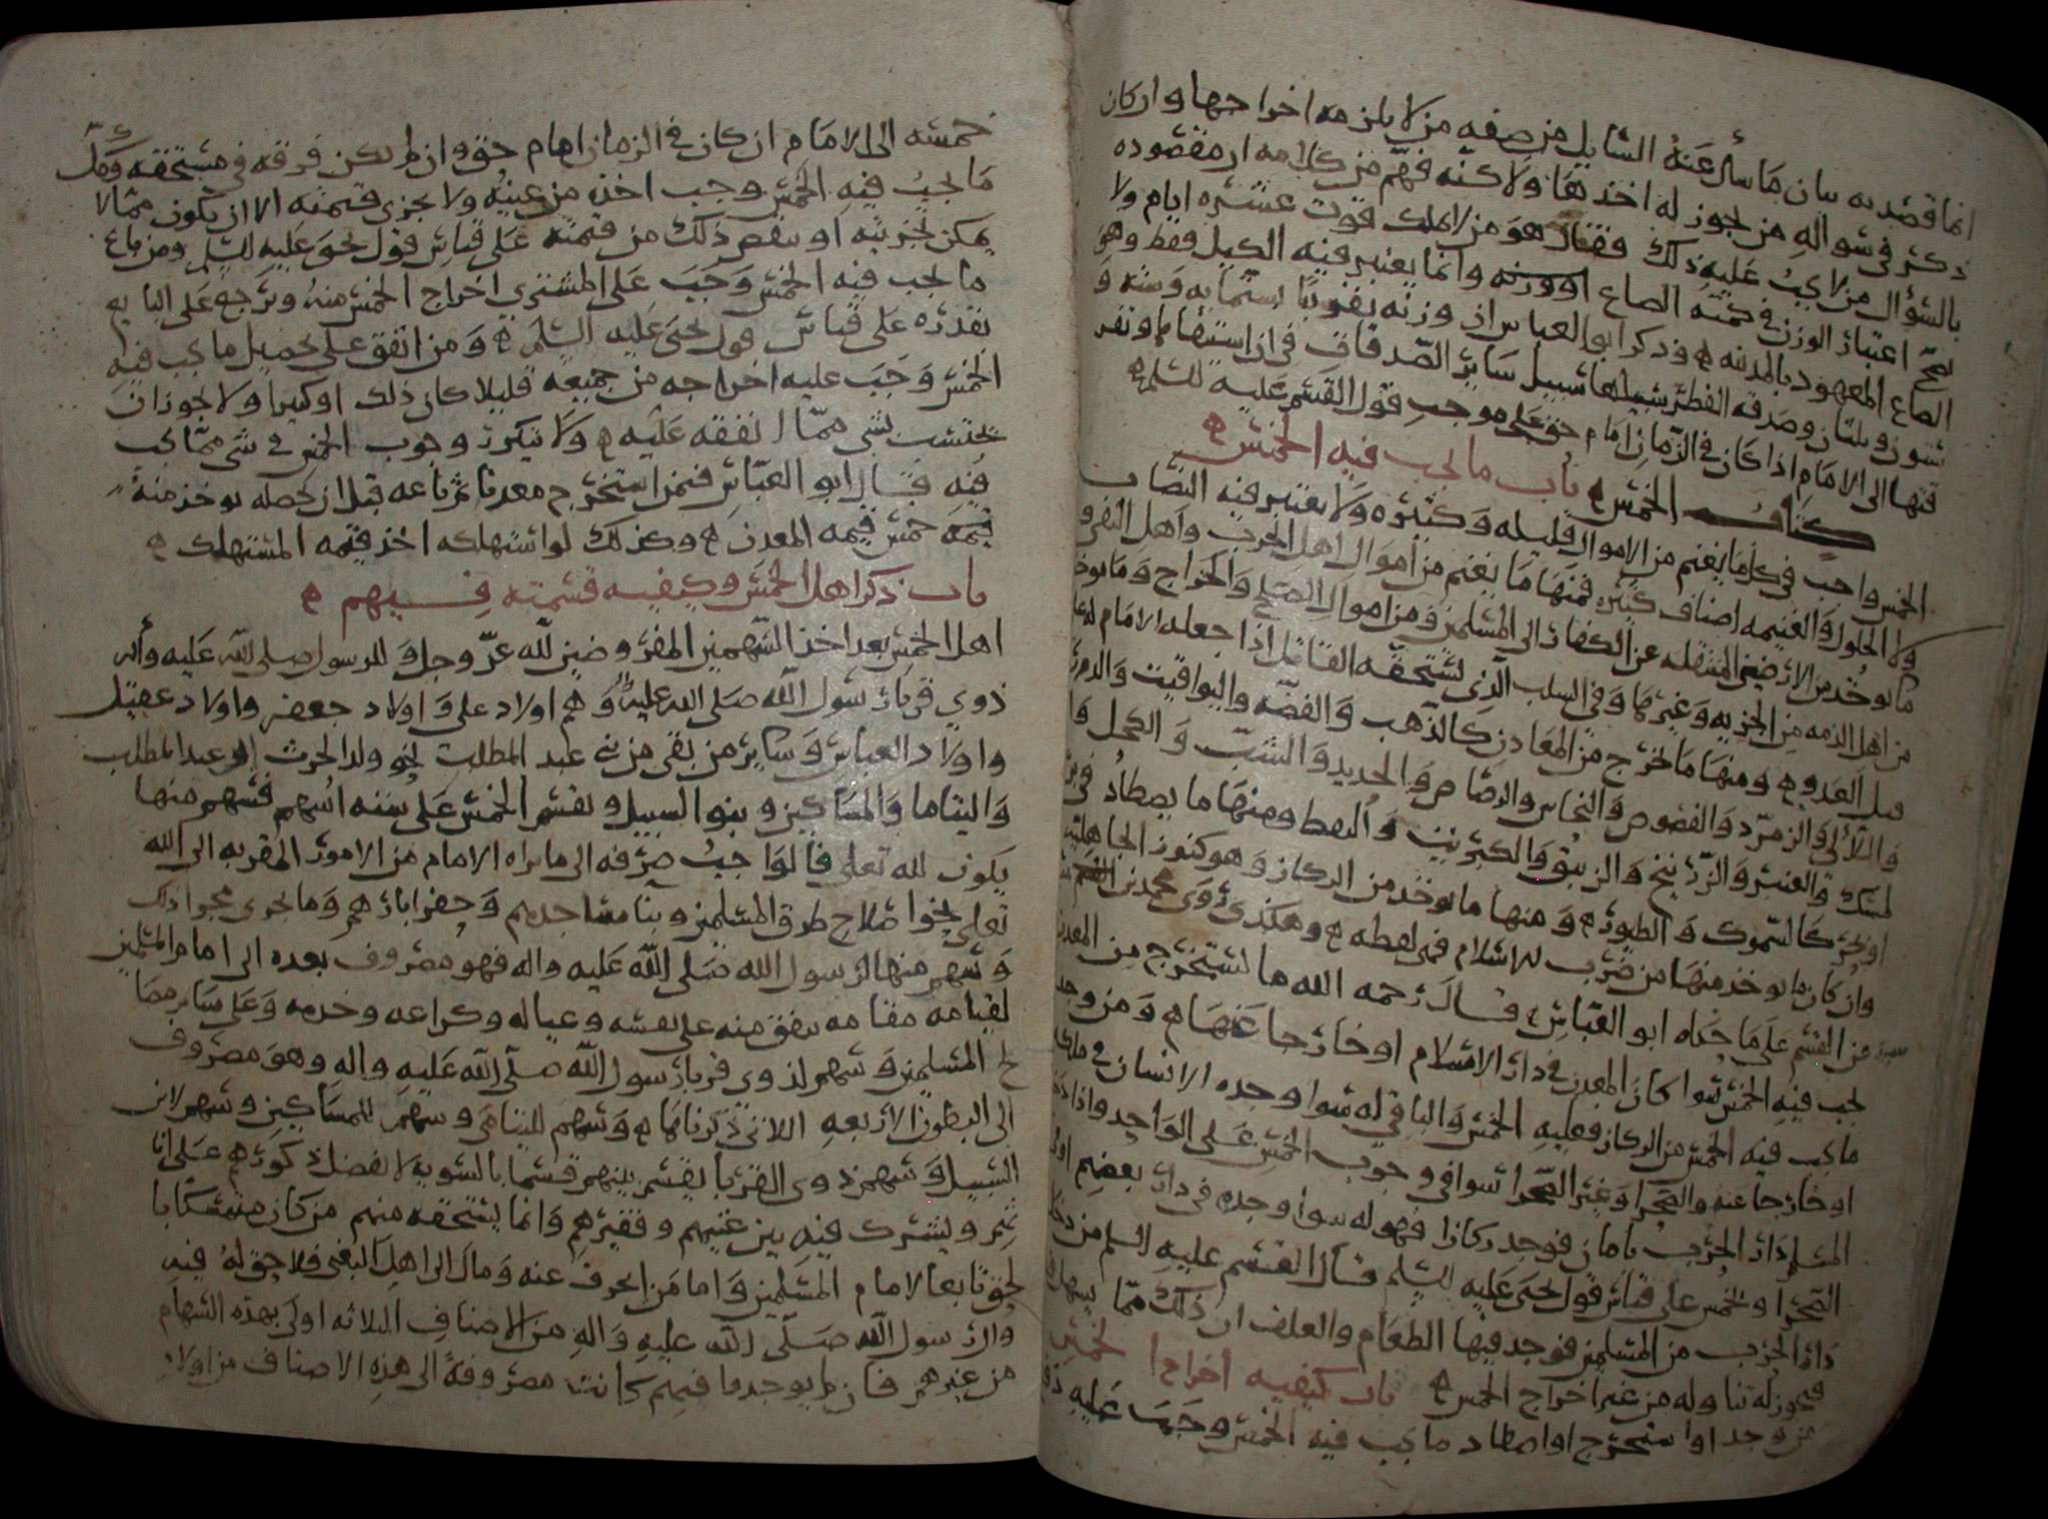 انما قصد به بيان ما سأل عنه السايل من صفه من لا يلزمه اخراجها وان كان
ذكر في سواله من يجوز له اخذها ولاكنه فهم من كلامه ان مقصوده
بالسؤال من لا يجب عليه ذلك فقال هو من لا يملك قوت عشره ايام ولا
يصح اعتبار الوزن في قيمته الصاع او وزنه وانما يعتبر فيه الكيل فقط وهو
الصاع المعهود بالمدينه وذكر ابو العباس ان وزنه تقريبا ستمايه وسته و
ستون وثلثان وصدقه الفطر سبيلها سبيل ساير الصدقات في ان استيفاها وتفر
قتها الى الامام اذا كان في الزمان امام حق على موجب قول القسم عليه السلم
كتاب الخمس باب ما يجب فيه الخمس
الخمس واجب في كل ما يغنم من الاموال قليله وكثيره ولا يعتبر فيه النصاب
ولا الحلول والغنيمه اصناف كثيره فمنها ما يغنم من اموال اهل الحرب واهل البغي و
ما يوخذ من الارضين المنتقله عن الكفار الى المسلمين ومن اموال الصلح والخراج وما يوخذ
من اهل الذمه من الجزيه وغيرها وفي السلب الذي يستحقه القاتل اذا جعله الامام له
قبل العدو ومنها ما يخرج من المعادن كالذهب والفضه واليواقيت والدر
واللآلى والزمرد والفصوص والنحاس والرصاص والحديد والشب والكحل وا
لمسك والعنبر والزرنيخ والزيبق والكبريت والنفط ومنها ما يصطاد في بر
او بحر كالسموك والطيور ومنها ما يوخذ من الركاز وهو كنوز الجاهليه
وان كان ما يوخذ منها من ضرب الاسلام فهي لقطه وهكذى روى محمد بن القسم
عن القسم على ما حكاه ابو العباس قال رحمه الله ما يستخرج من المعدن
يجب فيه الخمس سوا كان المعدن في دار الاسلام او خارجا عنها ومن وجد
ما يجب فيه الخمس من الركاز فعليه الخمس والباقي له سوا وجده الانسان في ملكه
او خارجا عنه والصحرا وغير الصحرا سوا في وجوب الخمس على الواجد واذا دخل
المسلم دار الحرب بامان فوجد ركازا فهو له سوا وجده في دار بعضهم او
الصحرا ويخمس على قياس قول يحيى عليه السلم قال القسم عليه السلم من دخل
دار الحرب من المسلمين فوجد فيها الطعام والعلف ان ذلك مما يسهل
فيجوز له تناوله من غير اخراج الخمس باب كيفيه اخراج الخمس
من وجد او استخرج او اصطاد ما يجب فيه الخمس وجب عليه
خمسه الى الامام ان كان في الزمان امام حق وان لم يكن فرقه في مستحقه وكل
ما يجب فيه الخمس وجب اخذه من عينه ولا يجزي قيمته الا ان يكون مما لا
يمكن تجزيته او ينقص ذلك من قيمته على قياس قول يحيى عليه السلم ومن باع
ما يجب فيه الخمس وجب على المشتري اخراج الخمس منه ويرجع على البايع
بقدره على قياس قول يحيى عليه السلم ومن انفق على تحصيل ما يجب فيه
الخمس وجب عليه اخراجه من جميعه قليلا كان ذلك او كثيرا ولا يجوز ان
يحتسب بشى مما انفقه عليه ولا يتكرر وجوب الخمس في شى مما يجب
فيه قال ابو العباس فيمن استخرج معدنا ثم باعه قبل ان يحصله يوخذ منه
قيمه خمس قيمه المعدن وكذلك لو استهلكه اخذ قيمه المستهلك
باب ذكر اهل الخمس وكيفيه قسمته فيهم
اهل الخمس بعد اخذ السهمين المفروضين لله عز وجل وللرسول صلى الله عليه وآله
ذوي قربا رسول الله صلى الله عليه وهم اولاد علي واولاد جعفر واولاد عقيل
واولاد العباس وساير من بقى من بني عبد المطلب نحو ولد الحرث بن عبد المطلب
واليتاما والمساكين وبنوا السبيل ويقسم الخمس على سته اسهم فسهم منها
يكون لله تعلى فالواجب صرفه الى ما يراه الامام من الامور المقربه الى الله
تعلى نحوا صلاح طرق المسلمين وبنا مساجدهم وحفر ابارهم وما يجري مجرا ذلك
وسهم منها لرسول الله صلى الله عليه واله فهو مصروف بعده الى امام المسلمين
لقيامه مقامه ينفق منه على نفسه وعياله وكراعه وخدمه وعلى ساير مصا
لح المسلمين وسهم لذوي قربا رسول الله صلى الله عليه واله وهو مصروف
الى البطون الاربعه اللاتي ذكرناها وسهم لليتامى وسهم للمساكين وسهم لابن
السبيل وسهم ذوى القربا يقسم بينهم قسما بالسويه لا يفضل ذكورهم على انا
ثهم ويشترك فيه بين غنيهم وفقيرهم وانما يستحقه منهم من كان متمسكا با
لحق تابعا لامام المسلمين واما من انحرف عنه ومال الى اهل البغي فلا حق له فيه
وال رسول الله صلى الله عليه واله من الاصناف الثلاثه اولى بهذه السهام
من غيرهم فان لم يوجد ما فيهم كانت مصروفه الى هذه الاصناف من اولاد